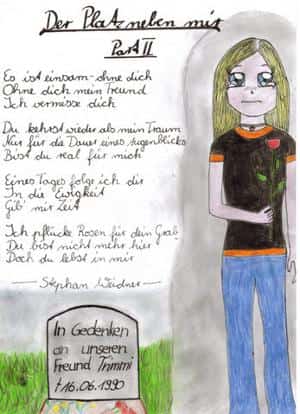 Der Platz neben mir
Part II
Es ist einsam - ohne dich
Ohne dich mein Freund
Ich vermisse dich
Du kehrst wieder als mein Traum
Nur für die Dauer eines Augenblicks
Bist du real für mich
Eines Tages folge ich dir
In die Ewigkeit
Gib' mir Zeit
Ich pflücke Rosen für dein Grab
Du bist nicht mehr hier
Doch du lebst in mir
Stephan Weidner
In Gedenken
an unseren
Freund Trimmi
†16.06.1990